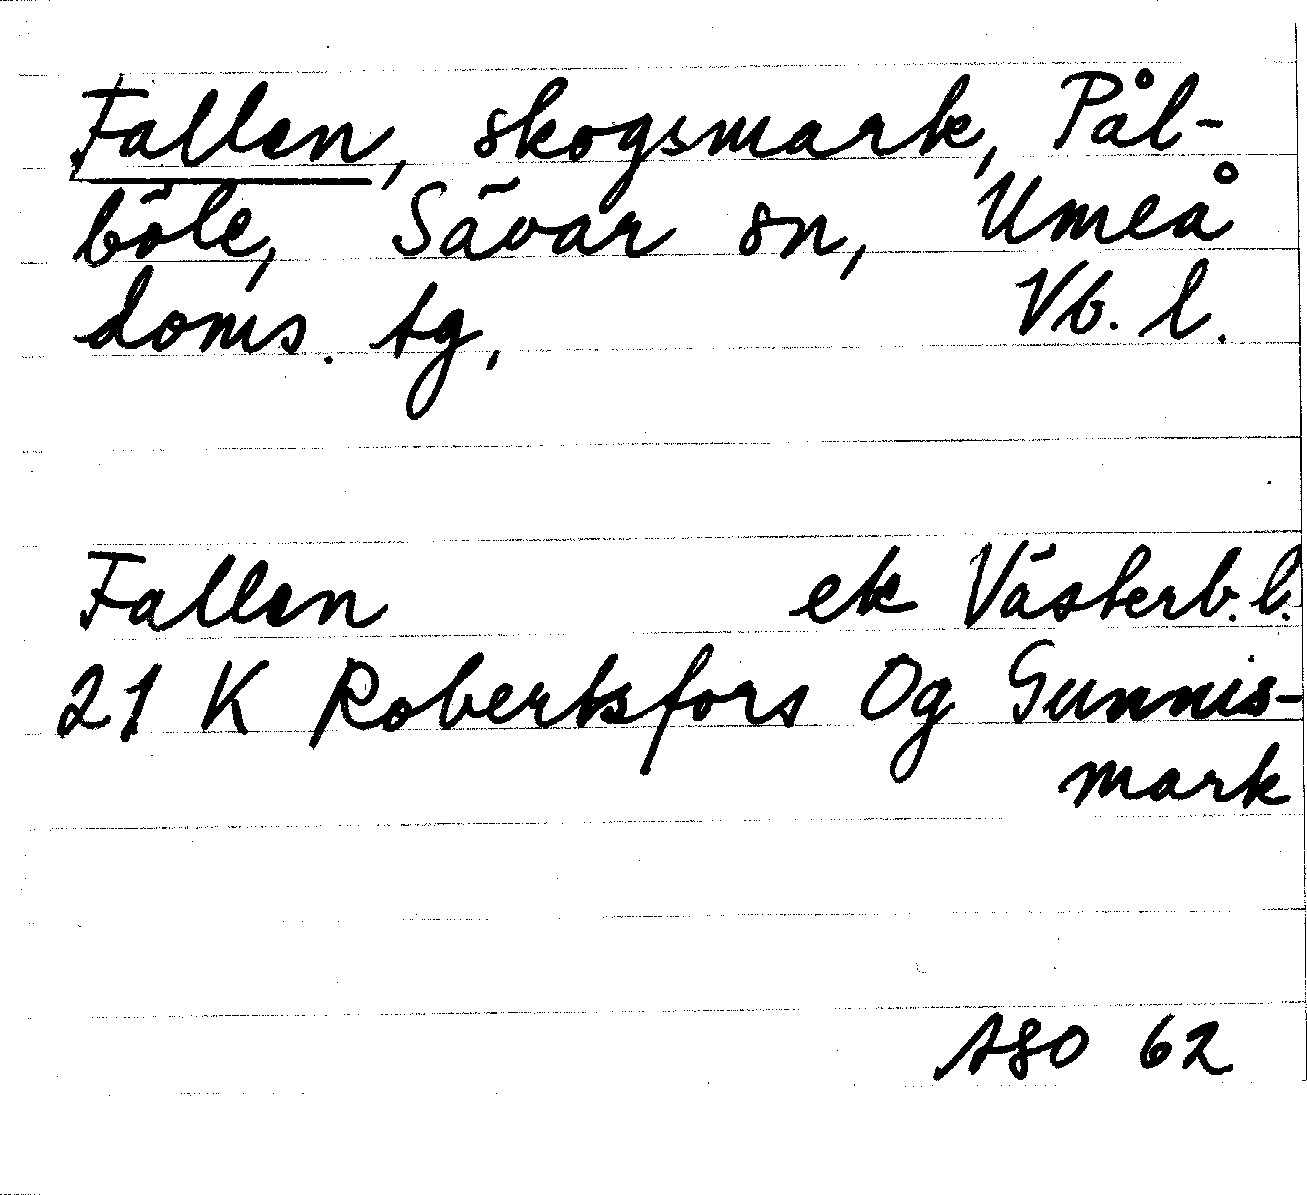 Fallen, skogsmark, Pål-
böle, Sävar sn, Umeå
doms. tg, Vb. l.
Fallen ek Västerb. l.
21 K Robertsfors Og Gunnis-
mark
ASO 62